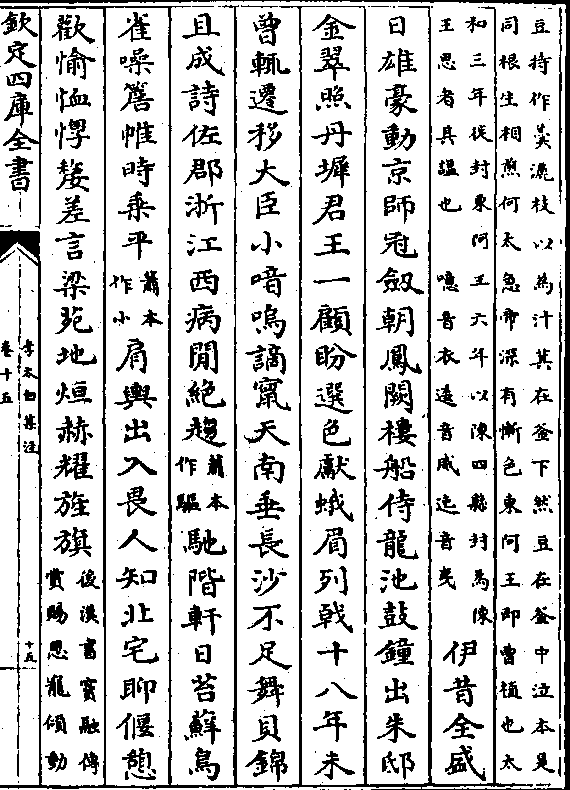 豆持作羹漉枝以為汁萁在釜下然豆在釜中泣本是
同根生相煎何太急帝深有慚色東阿王即曹植也太
和三年徙封東阿王六年以陳四縣封為陳
王思者其諡也 噫音衣逶音威迤音曳
伊昔全盛
日雄豪動京師冠劔朝鳳闕樓船侍龍池鼓鐘出朱邸
金翠照丹墀君王一顧盼選色獻蛾眉列戟十八年未
曾輒遷移大臣小喑嗚謫竄天南垂長沙不足舞貝錦
且成詩佐郡浙江西病閒絶趨蕭本作驅馳階軒日苔蘚鳥
雀噪簷帷時乗平蕭本作小肩輿出入畏人知北宅聊偃憩
歡愉恤惸嫠差言梁苑地烜赫耀旌旗
後漢書竇融傳
賞賜恩寵傾動
欽定四庫全書
李太白集注
卷十五
十五